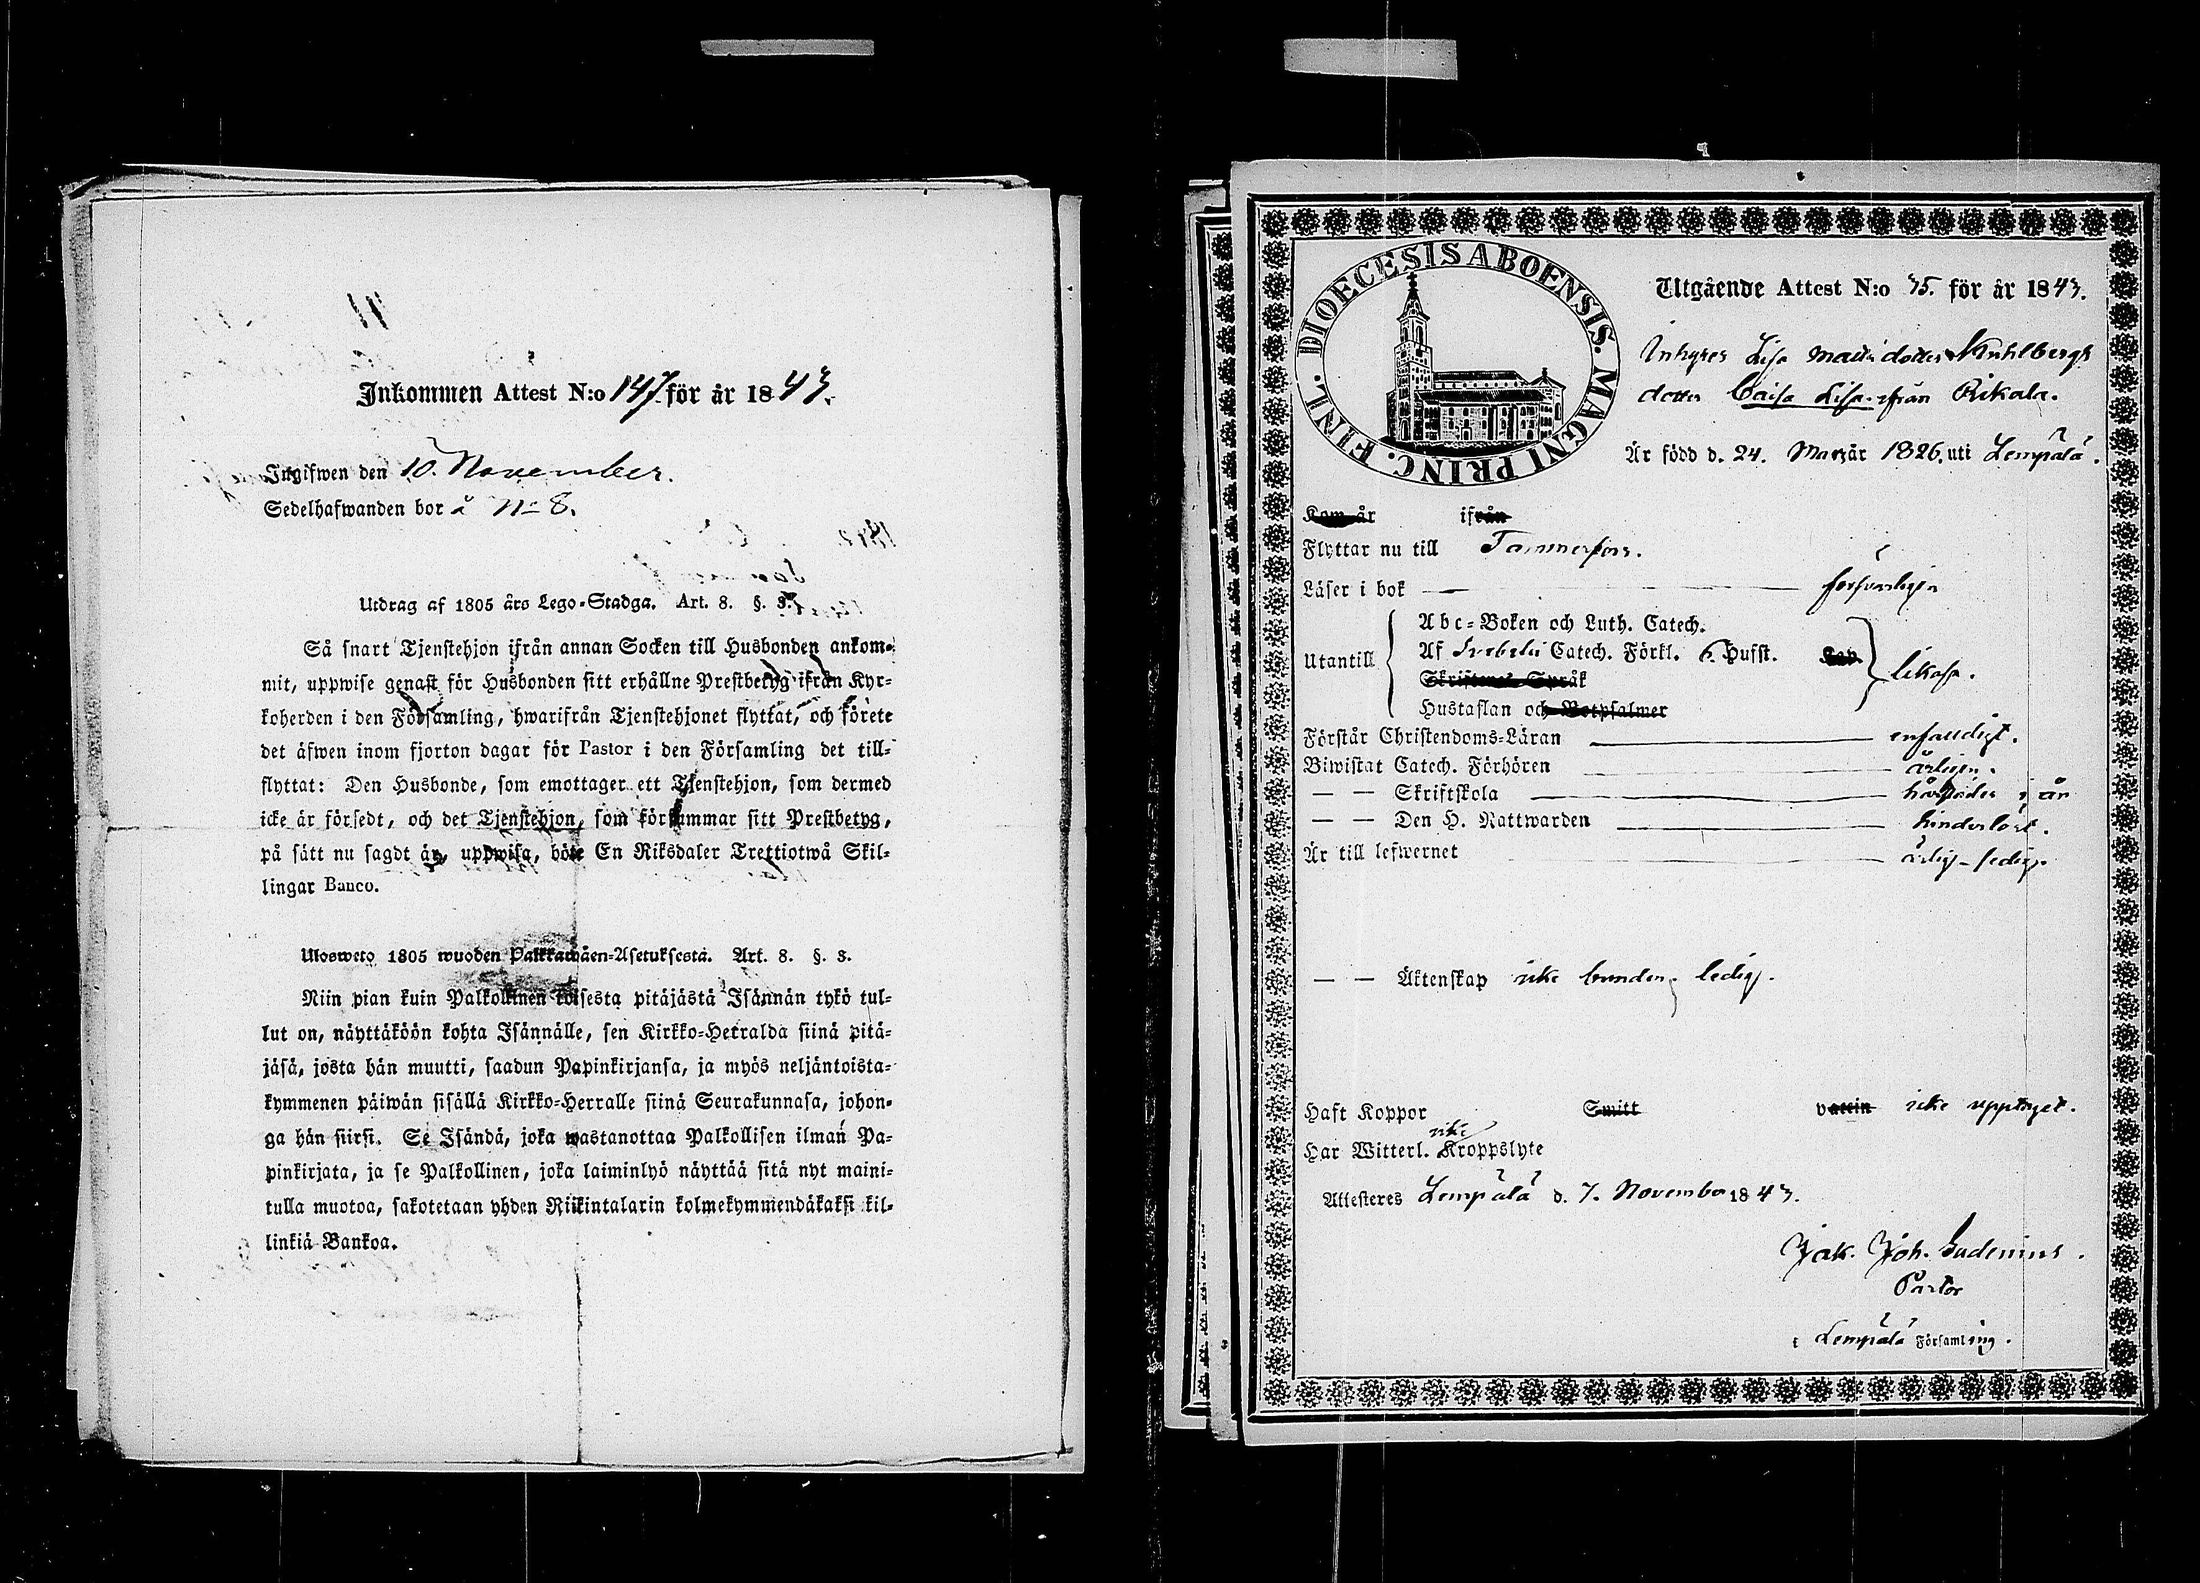 Inkommen Attest N:o 147. för år 1843.
Ingifwen den 10. November.
Sedelhafwanden bor å No 8.
Utdrag af 1805 års Lego-Stadga. Art. 8. §. 3.
Så snart Tjenstehjon ifrån annan Socken till Husbonden ankom-
mit, uppwise genast för Husbonden sitt erhållne Prestbetyg ifrån Kyr-
koherden i den Församling, hwarifrån Tjenstehjonet flyttat, och förete
det äfwen inom fjorton dagar för Pastor i den Församling det till-
flyttat: Den Husbonde, som emottager ett Tjenstehjon, som dermed
icke är försedt, och det Tjenstehjon, som försummar sitt Prestbetyg,
på sätt nu sagdt är, uppwisa, böte En Riksdaler Trettiotwå Skil-
lingar Banco.
Ulosweto 1805 wuoden Palkkawäen-Asetuksesta. Art. 8. §. 3.
Niin pian kuin Palkollinen toisesta pitäjästä Isännän tykö tul-
lut on, näyttäköön kohta Isännälle, sen Kirkko-Herralda siinä pitä-
jäsä, josta hän muutti, saadun Papinkirjansa, ja myös neljäntoista-
kymmenen päiwän sisällä Kirkko-Herralle siinä Seurakunnasa, johon-
ga hän siirsi. Se Isändä, joka wastanottaa Palkollisen ilman Pa-
pinkirjata, ja se Palkollinen, joka laiminlyö näyttää sitä nyt maini-
tulla muotoa, sakotetaan yhden Riikintalarin kolmekymmendäkaksi kil-
linkiä Bankoa.
DIOECESIS ABOENSIS. MAGNI PRINC. FINL.
Utgående Attest N:o 35. för år 1843.
Inhyses Lisa dotter
dotter Caisa Lisa ifrån Rikala.
Är född d. 24. Mars år 1826. uti Lempälä.
Kom år ifrån
Flyttar nu till Tammerfors.
Läser i bok försvarligen
Utantill
Abc-Boken och Luth. Catech.
Af Svebelii Catech. Förkl. 6. Hufst. Kap.
Skriftenes Språk
Hustaflan och Botpsalmer
likaså.
Förstår Christendoms-Läran enfaldigt.
Biwistat Catech. Förhören årligen.
— — Skriftskola i år
— — Den H. Nattwarden hinderlöst.
Är till lefwernet ärlig - fredlig.
— — Äktenskap icke bunden, ledig.
Haft Koppor Smitt vaccin icke upptaget.
Har Witterl. icke Kroppslyte
Attesteres Lempälä d. 7. November 1843.
Jak. Joh. Gadenius.
Pastor
i Lempälä Församling.